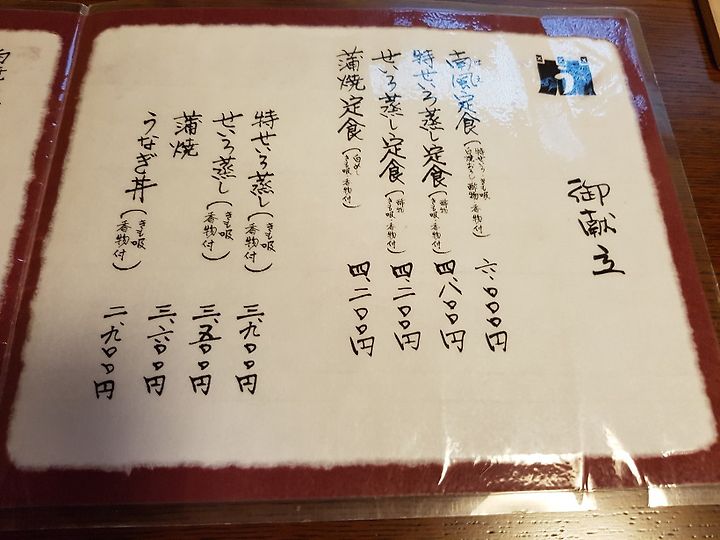 う
御献立
南風定食(特せいろ きも吸 白焼おろし 酢物 香物付) 六、〇〇〇円
特せいろ蒸し定食(酢物 きも吸 香物付) 四、八〇〇円
せいろ蒸し定食(酢物 きも吸 香物付) 四、二〇〇円
蒲焼定食(白めし きも吸 香物付) 四、二〇〇円
特せいろ蒸し(きも吸 香物付) 三、九〇〇円
せいろ蒸し(きも吸 香物付) 三、五〇〇円
蒲焼 三、六〇〇円
うなぎ丼(きも吸 香物付) 二、九〇〇円
白焼